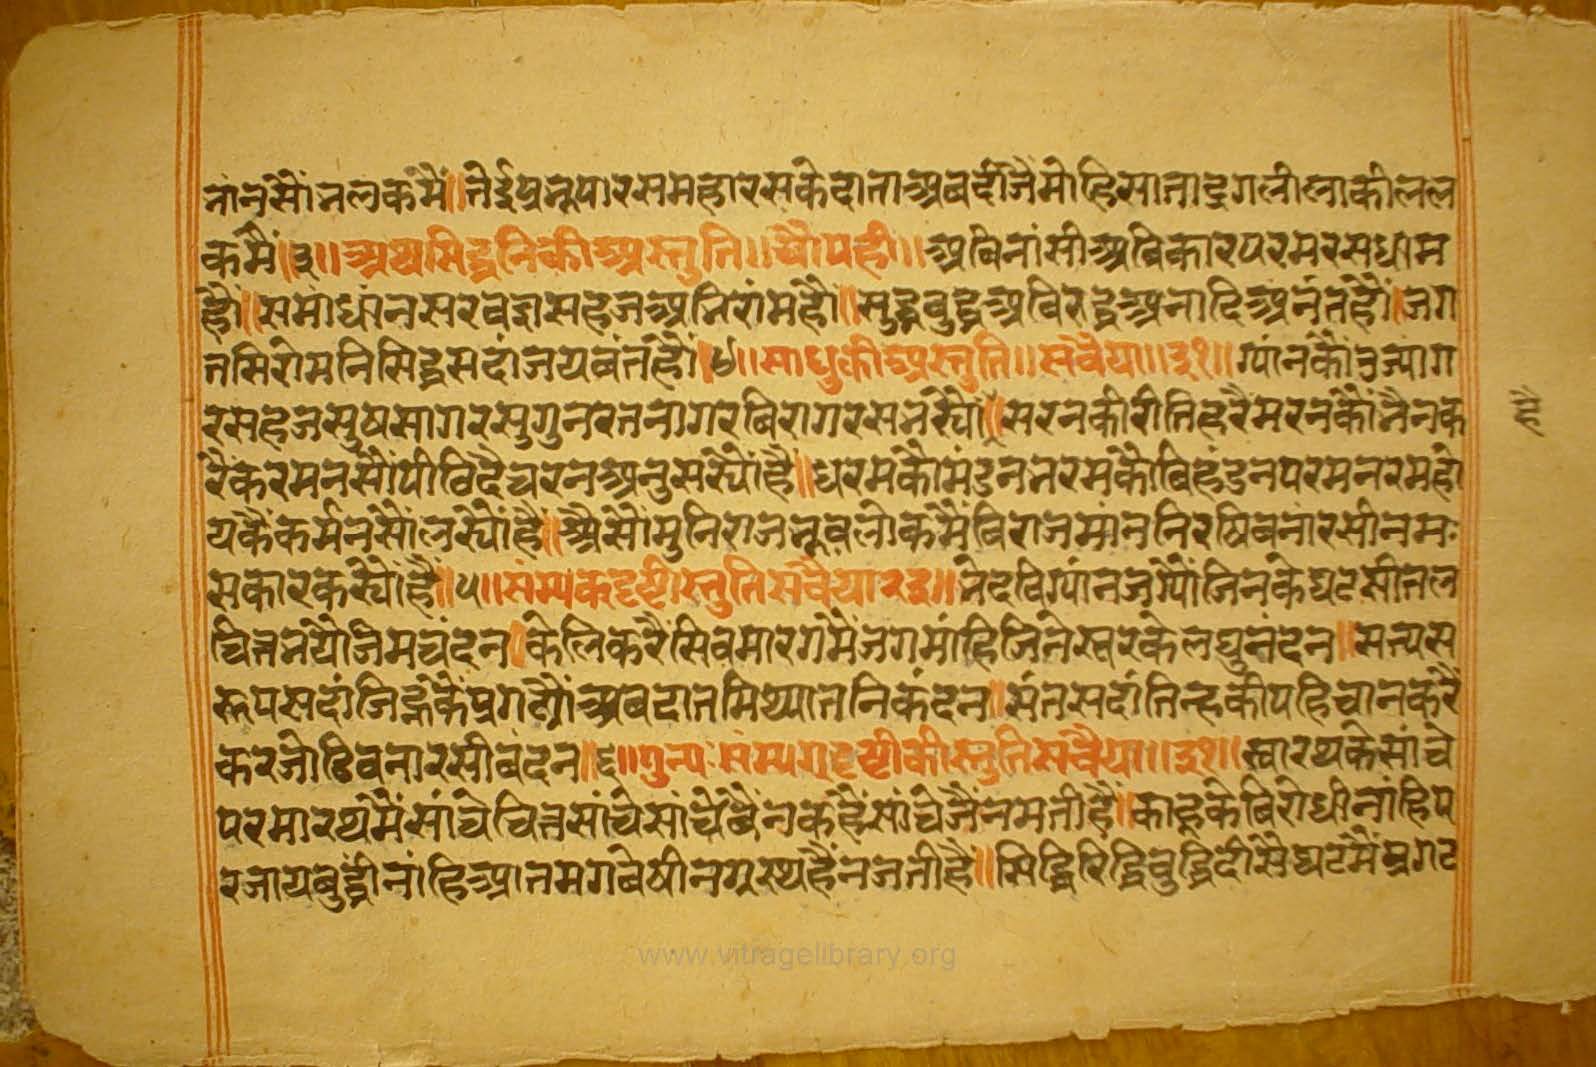 नानसौं नलकमैं॥ तेई प्रभू पारसमहारसके दाता अब दीजै मोहि साता द्रगलीलाकी लल
कमैं॥३॥ अथ सिद्धनिकी अस्तुति॥ चौपही॥ अबिनांसी अबिकार परमरसधाम
हौ॥ समाधांन सरवज्ञ सहज अभिरांम हौ॥ सुद्ध बुद्ध अबिरुद्ध अनादि अनंत हौ॥ जग
तसिरोमनि सिद्ध सदां जयवंत हौ॥४॥ साधुकी अस्तुति॥ सवैया॥३१॥ ग्यांनकौ उज्याग
र सहजसुषसागर सुगुनरतनागर बिरागरस भर्यौ है॥ सरनकी रीति हरै मरनकौ भै न क
रै करमनसौं पीठि दै चरन अनुसर्यौ है॥ धरमकौ मंडन भरमकौ बिहंडन परम नरम हो
यकैं कर्मनसौं लर्यौ है॥ अैसौ मुनिराज भूवलोकमैं विराजमांन निरषि वनारसी नम
सकार कर्यौ है॥५॥ संम्यकदृष्टी स्तुति सवैया २३॥ भेदविग्यांन जग्यौ जिनके घट सीतल
चित्त भयौ जिम चंदन॥ केलि करैं सिवमारगमैं जगमांहि जिनेस्वरके लघुनंदन॥ सत्यस
रूप सदां जिह्नकैं प्रगट्यौ अबदात मिथ्यातनिकंदन॥ संतसदां तिन्हकी पहिचांन करै
कर जोडि वनारसी वंदन॥६॥ पुन्य संम्यग्दृष्टीकी स्तुति सवैया॥३१॥ स्वारथके सांचे
परमारथमैं सांचे चित्त सांचे सांचे बैंन कहैं सांचे जैंनमती हैं॥ काहूके बिरोधी नांहि प
रजायबुद्धी नांहि आतमगवेषी न गृहस्थ हैं न जती हैं॥ सिद्धि रिद्धि बुद्धि दीसै घटमैं प्रगट
है
www.vitragelibrary.org